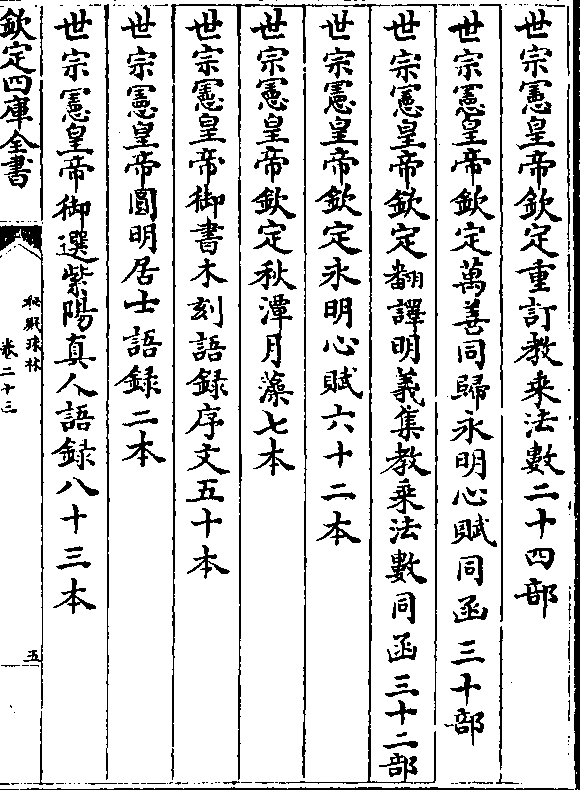 世宗憲皇帝欽定重訂教乘法數二十四部
世宗憲皇帝欽定萬善同歸永明心賦同函三十部
世宗憲皇帝欽定翻譯明義集教乘法數同函三十二部
世宗憲皇帝欽定永明心賦六十二本
世宗憲皇帝欽定秋潭月藻七本
世宗憲皇帝御書木刻語録序文五十本
世宗憲皇帝圓明居士語録二本
世宗憲皇帝御選紫陽真人語録八十三本
欽定四庫全書
秘殿珠林
卷二十三
五